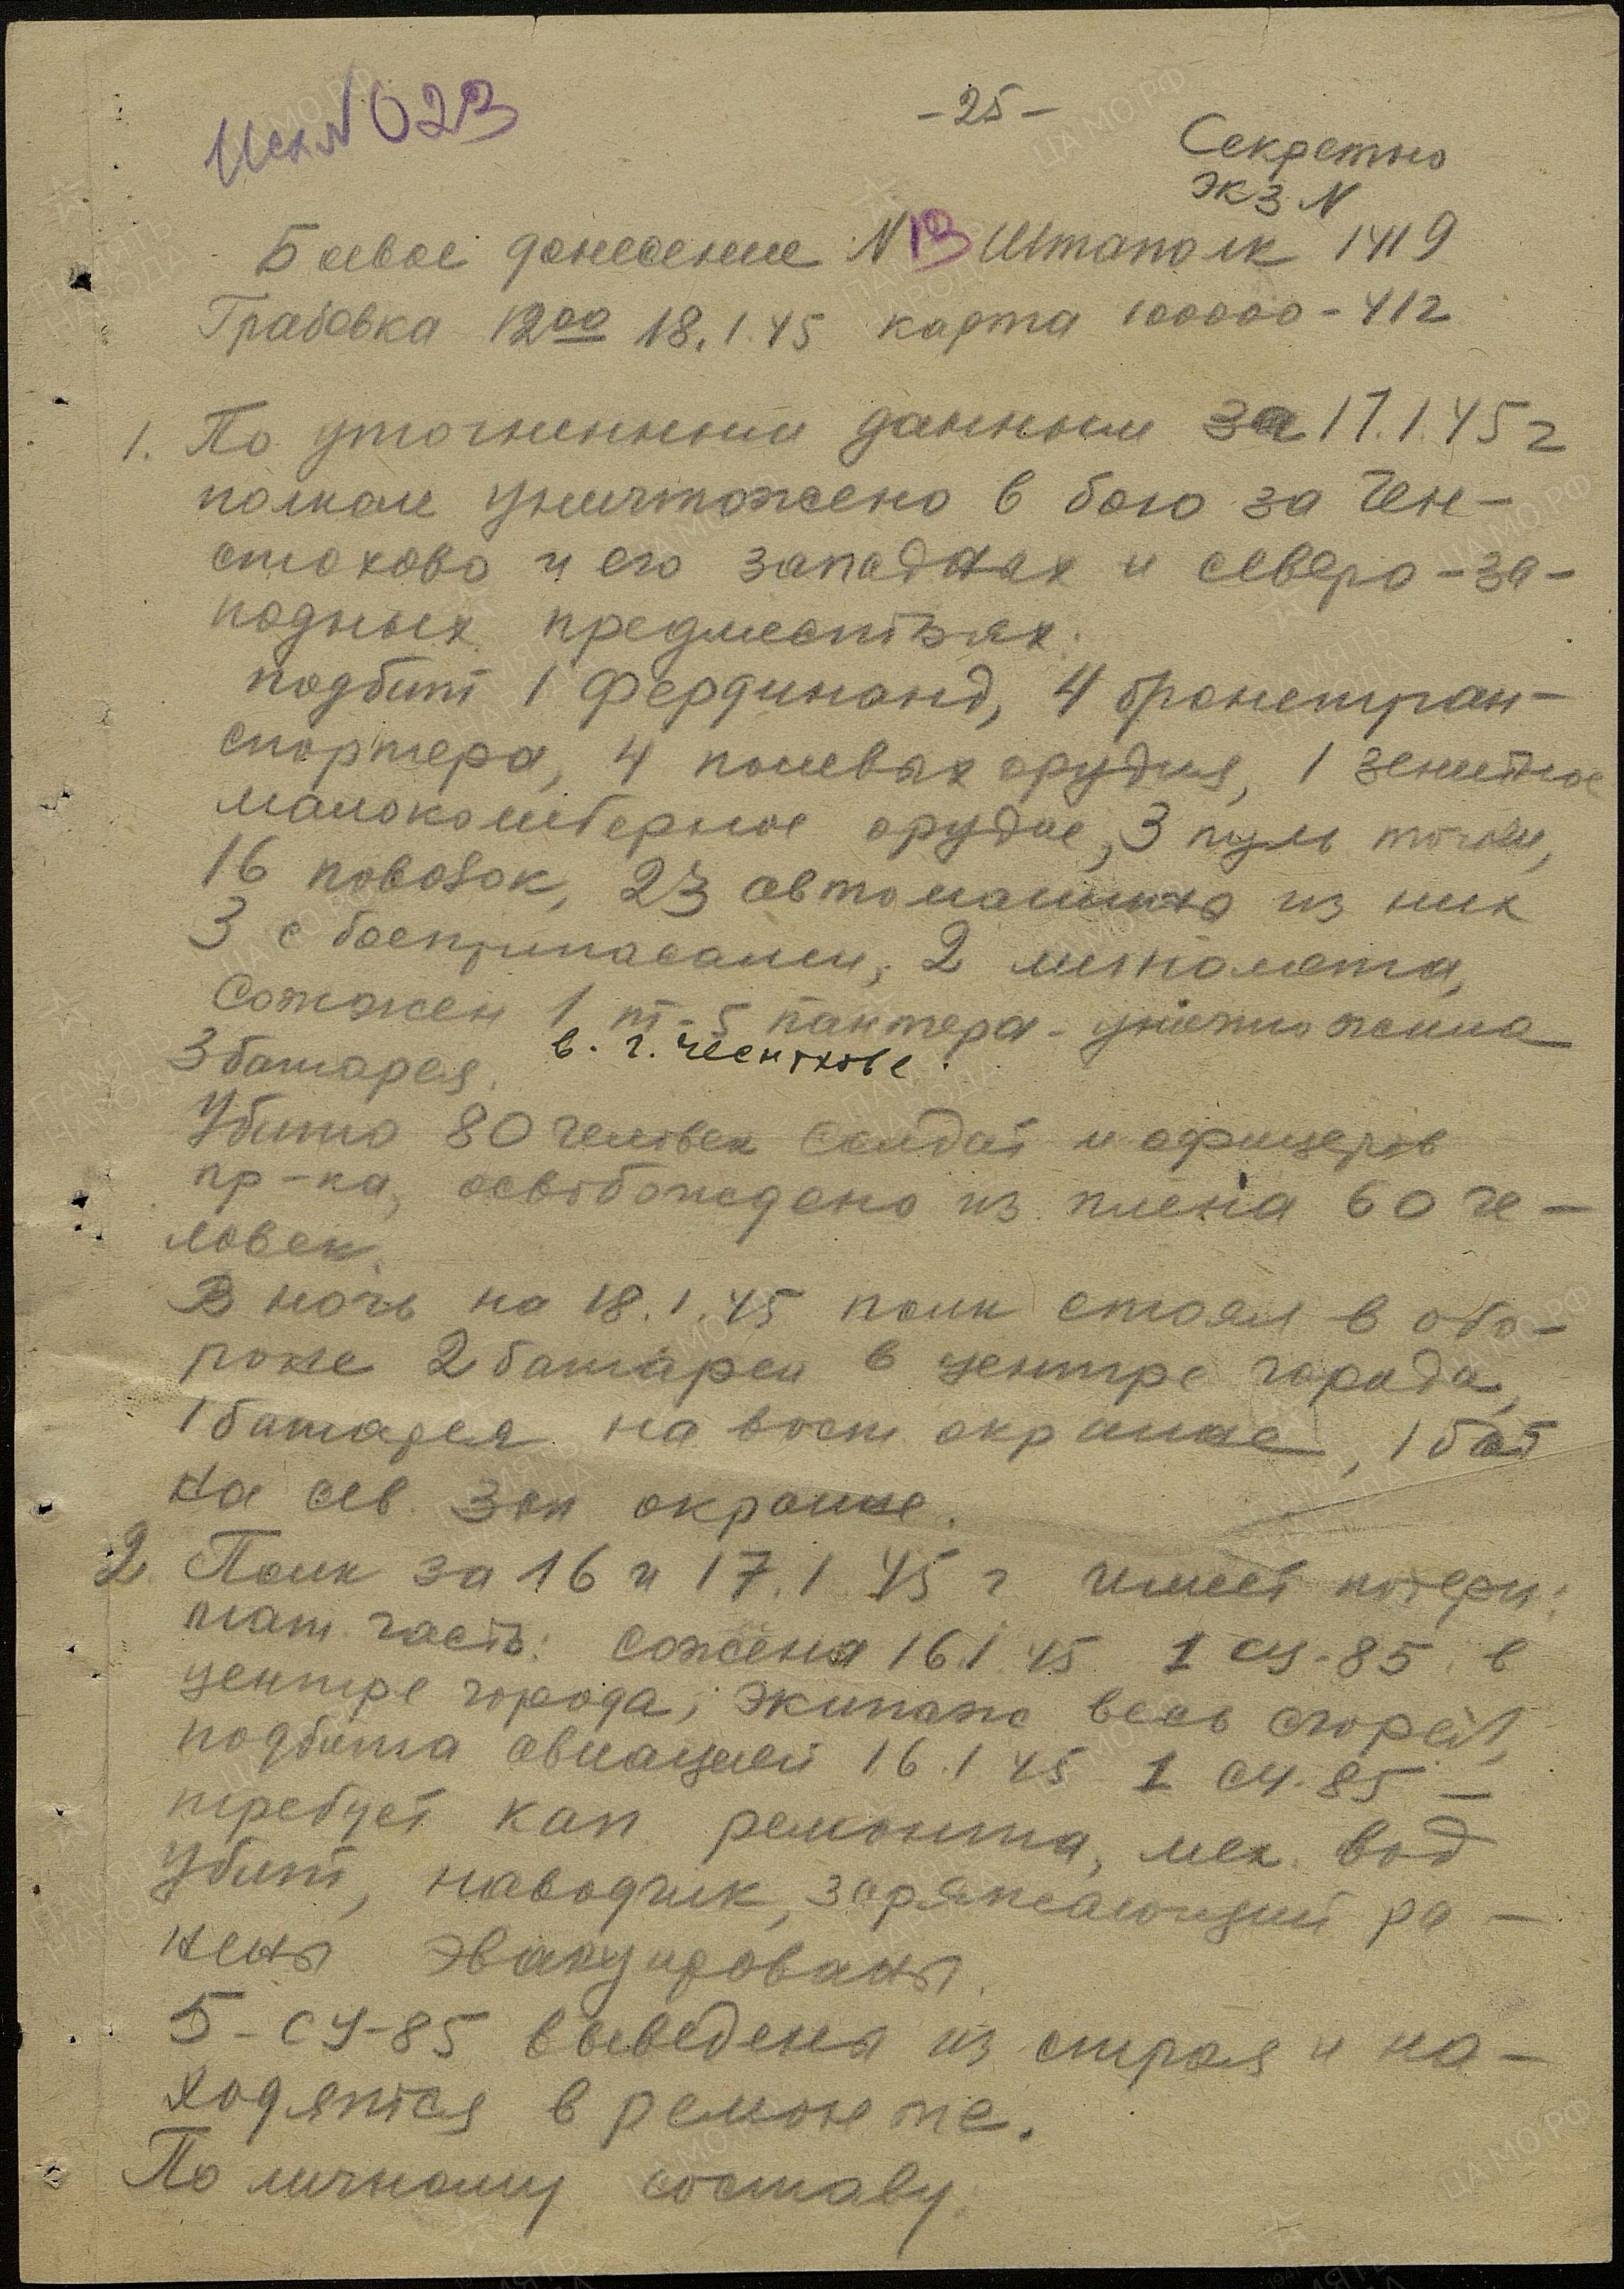 Исх N 023
-25-
Секретно
экз N
Боевое донесение N 13 Штаполк 1419
Грабовка 12 00 18.1.45 карта 100000-412
1. По уточненным данным за 17.1.45 г
полком уничтожено в бою за Чен-
стохово и его западных и северо-за-
падных предместьях:
подбит 1 фердинанд, 4 бронетран-
спортера, 4 полевых орудия, 1 зенитное
малокалиберное орудие, 3 пул. точки,
16 повозок, 23 автомашины из них
3 с боеприпасами, 2 миномета,
Сожжен 1 т-5 пантера - уничтожена
3 батарея. в. г. Ченстохове.
Убито 80 человек солдат и офицеров
пр-ка, освобождено из плена 60 че-
ловек.
В ночь на 18.1.45 полк стоял в обо-
роне 2 батареи в центре города,
1 батарея на вост окраине, 1 бат
на сев. зап окраине.
2. Полк за 16 и 17.1.45 г имеет потери:
мат. часть: сожжена 16.1.45 1 СУ-85 в
центре города, экипаж весь сгорел,
подбита авиацией 16.1.45 1 СУ-85 -
требует кап ремонта, мех. вод
убит, наводчик, заряжающий ра-
нены эвакуированы.
5-СУ-85 выведены из строя и на-
ходятся в ремонте.
По личному составу: